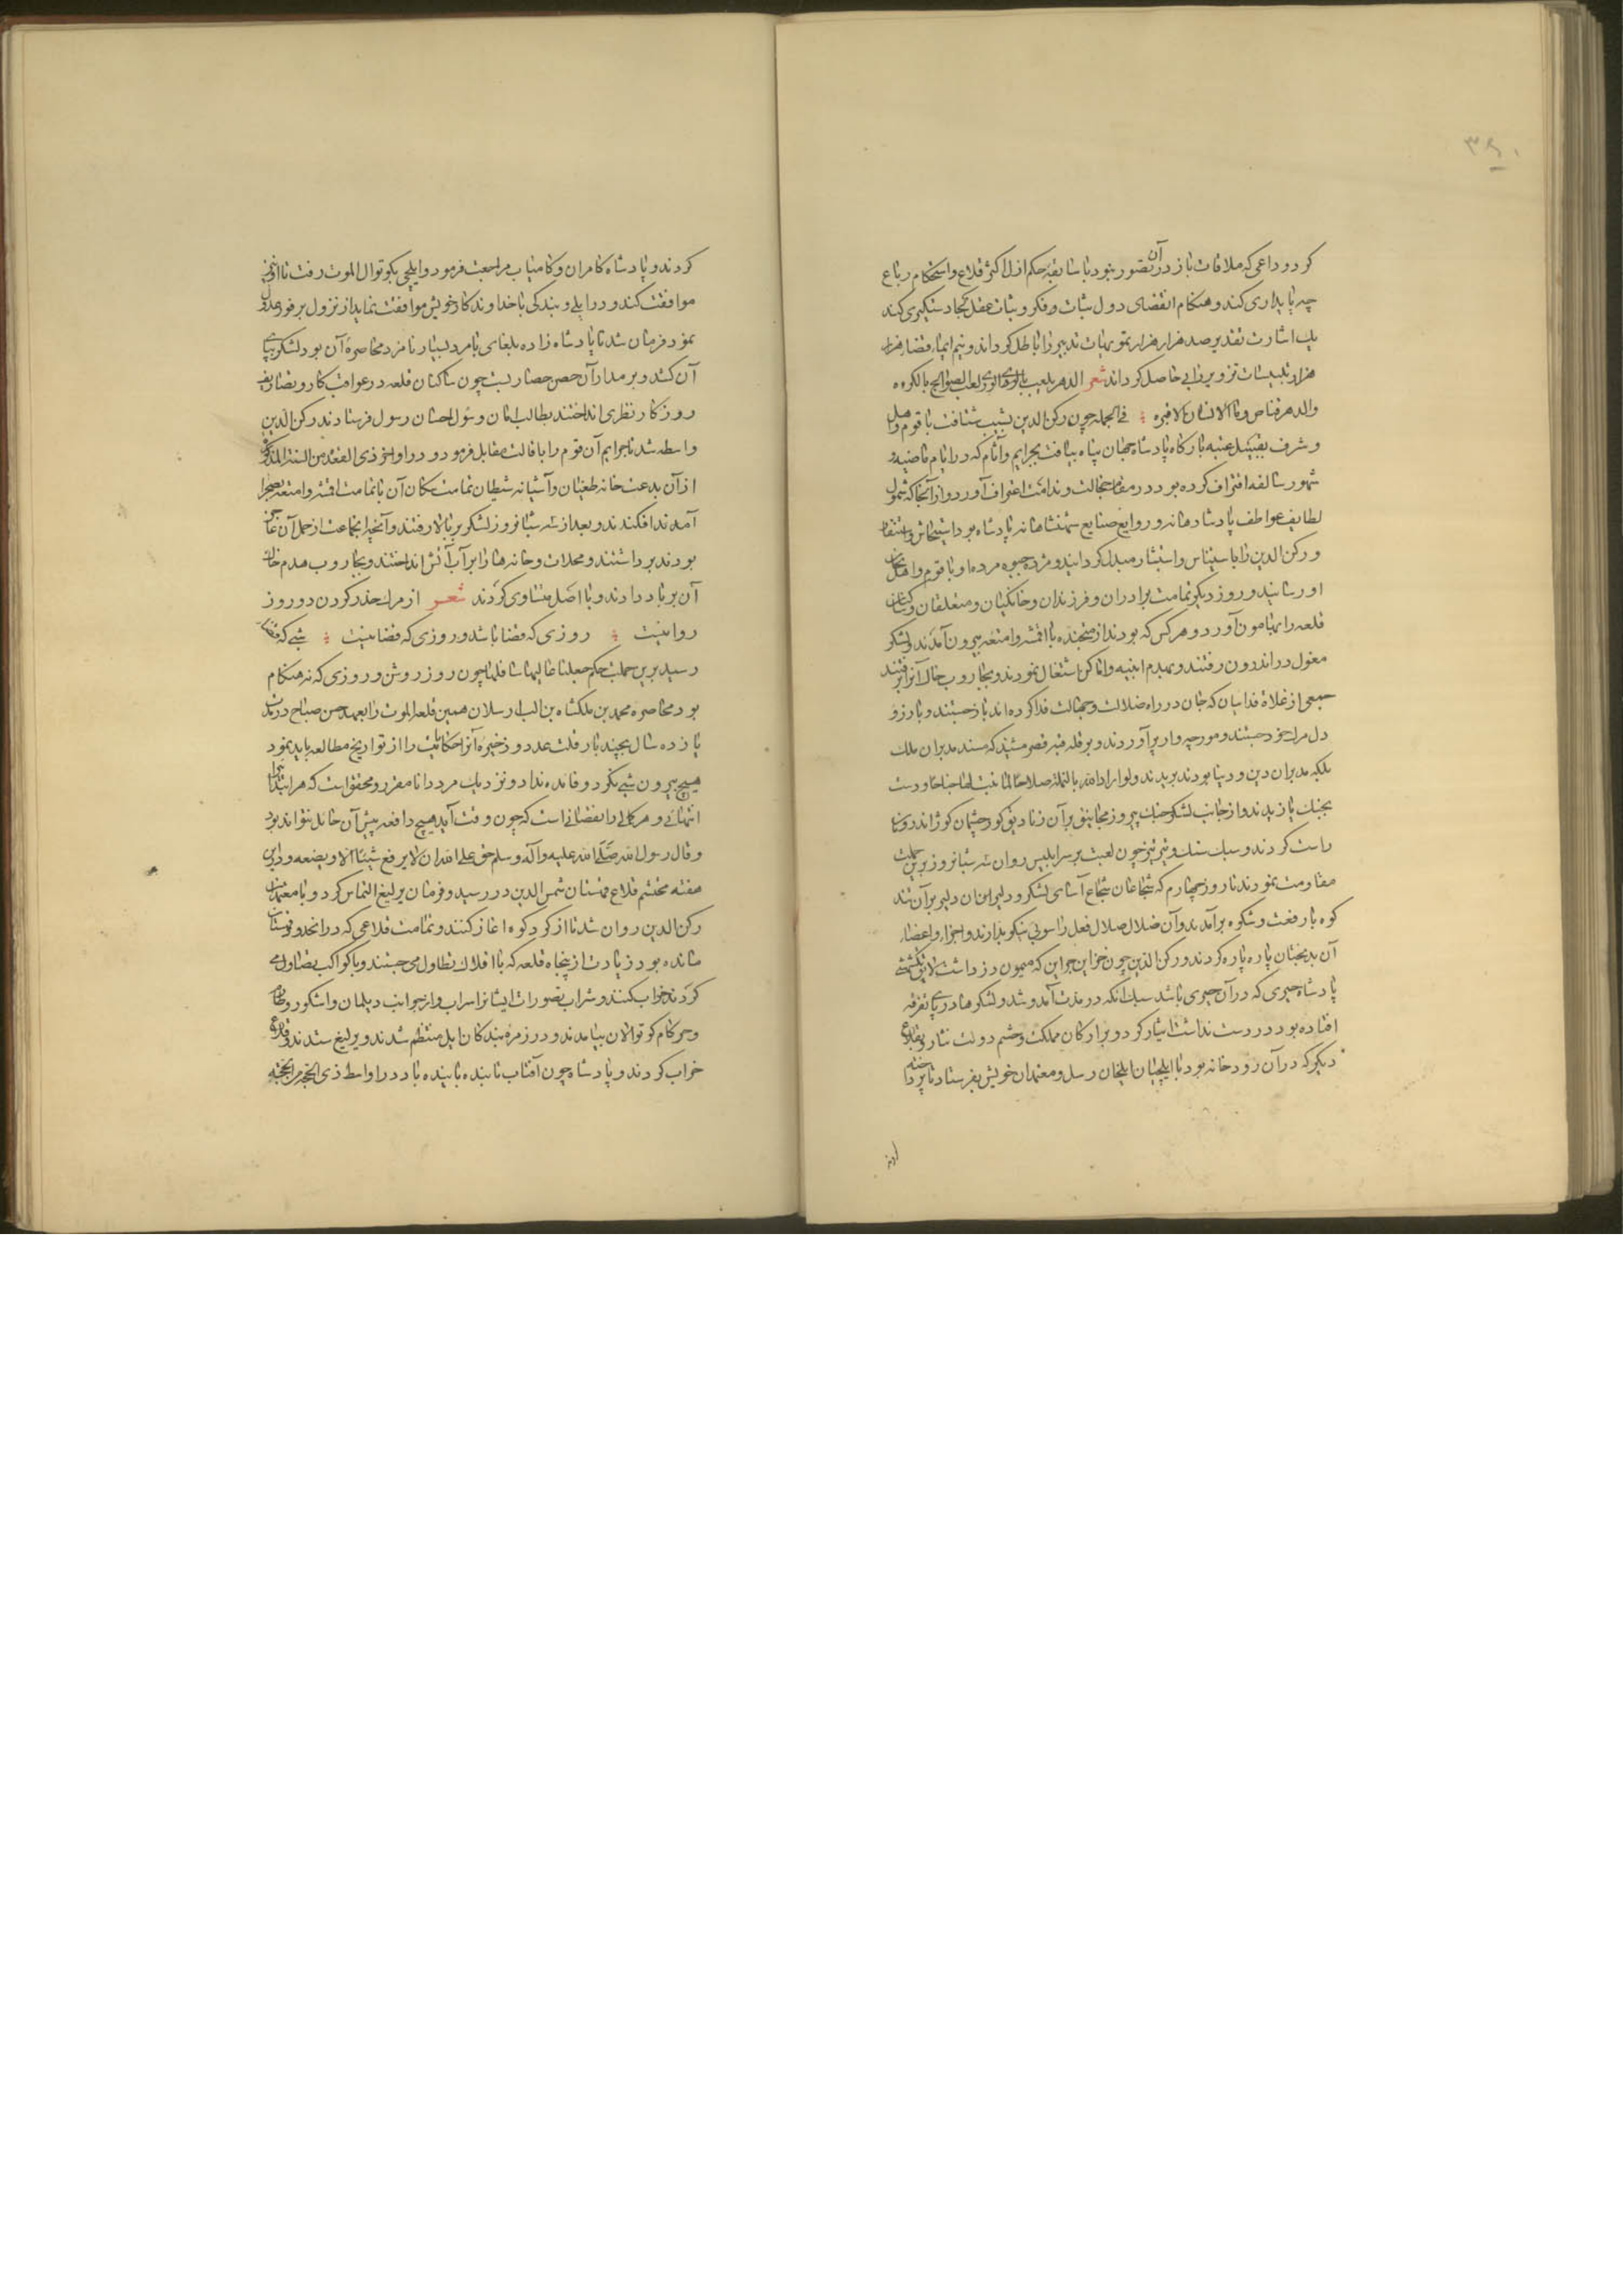 ۳۹۰
کرد و وداعی که ملاقات باز در آن تصور نبود با سابقه حکم ازل اکثر قلاع و استحکام رباع
چه پایداری کند و هنکام انقضای دول ثبات و فکر و ثبات عقل کجا دستکیری کند
یک اشارت تقدیر صد هزار هزار تمویهات تدبیر را باطل کرداند و نیم ایماء قضا هزار
هزار تلبیسات تزویر را بی حاصل کرداند شعر الدهر یلعب بالوری لعب الصوالج بالکره
والدهر قناص وما الانسان الا قبره فی الجمله چون رکن الدین بشیب شتافت با قوم و اهل
و شرف تقبیل عتبه بارکاه پادشاه جهان پناه بیافت بجرایم و آثام که در ایام ماضیه و
شهور سالفه اقتراف کرده بود در مقام خجالت و ندامت اعتراف آورد و از آنجا که شمول
لطایف عواطف پادشاهانه و روایع صنایع شهنشاهانه پادشاه بود استیحاش و استشعار
و رکن الدین را باستیناس و استبشار مبدل کردانید و مژده حیوه مرده او با قوم و اهل
او رسانید و روز دیکر تمامت برادران و فرزندان و خانکیان و متعلقان و ساکنان
قلعه را بهامون آورد و هر کس که بودند از متجنده با اقمشه و امتعه بیرون آمدند و لشکر
مغول در اندرون رفتند و بهدم ابنیه و اماکن اشتغال نمودند و بجاروب خاک آنرا برفتند
جمعی از غلاة فداییان که جان در راه ضلالت و جهالت فدا کرده اند باز جستند و بارزو
دل مرک خود جستند و مورچه وار پر آوردند و بر قله قبه قصر مشید که مسند مدبران ملک
بلکه مدبران دین و دنیا بودند بریدند ولو اراد الله بالنملة صلاحا لما نبت لها جناحا و دست
بجنک یازیدند و از جانب لشکر جنک پیروز مجانیق بر آن زنادیق کور چشمان کوژ اندرون
راست کردند و سبک سنک و تیر تیز چون لعنت بر سر ابلیس روان سه شبانروز برین جملت
مقاومت نمودند تا روز چهارم که شجاعان شجاع آسای لشکر و دلیر ایشان دلیر بر آن تند
کوه با رفعت و شکوه بر آمدند و آن ضلال صلال فعل را سوبی نیکو بدادند و اجزاء و اعضاء
آن بدبختان پاره پاره کردند و رکن الدین چون خزاین جز این که میمون دز داشت لایق تکشمشی
پادشاه چیزی که در آن چیزی باشد سبک انکه در مدت آمد و شد و لشکرها در پای تفرقه
افتاده بود در دست نداشت ایثار کرد و بر ارکان مملکت و حشم دولت نثار و بقلاع
دیکر که در آن رودخانه بود با ایلچیان ایلخان رسل و معتمدان خویش بفرستاد تا پرداخته
کردند و پادشاه کامران و کامیاب مراجعت فرمود و ایلچی بکوتوال الموت رفت تا او نیز
موافقت کند و در ایلی و بندکی با خداوندکار خویش موافقت نماید از نزول بر فور عدول
نمود فرمان شد تا پادشاه زاده بلغای با مرد بسیار نامزد محاصره آن بود لشکر بپای
آن کشد و بر مدار آن حصن حصار بست چون ساکنان قلعه در عواقب کار و تصاریف
روزکار نظری انداختند بطالب امان و سؤل احسان رسول فرستادند رکن الدین
واسطه شد تا جرایم آن قوم را باقالت مقابل فرمود و در اواخر ذی القعده من السنة المذکوره
از آن بدعت خانه طغیان و آشیانه شیطان تمامت سکان آن با تمامت اقمشه و امتعه بصحرا
آمدند افکندند و بعد از سه شبانروز لشکر بر بالا رفتند و آنچه آن جماعت از حمل آن عاجز
بودند برداشتند و محلات و خانه ها را بر آب آتش انداختند و بجاروب هدم خاک
آن بر باد دادند و با اصل متساوی کردند شعر از مرک حذر کردن دو روز
روا نیست روزی که قضا باشد و روزی که قضا نیست شبی که قضا
رسید برین جملت حکم جعلنا عالیها سافلها چون روز روشن و روزی که نه هنکام
بود محاصره محمد بن ملکشاه بن الب ارسلان همین قلعه الموت را بعهد حسن صباح در مدت
یازده سال بچند بار قلت عدد و ذخیره آنرا حکایت را از تواریخ مطالعه باید نمود
هیچ بیرون شیی نکرد و فائده نداد و نزدیک مرد دانا مقرر و محقق است که هر ابتدا را
انتهائی و هر کمالی را نقصانی است که چون وقت آید هیچ دافعه پیش آن حائل نتواند بود
و قال رسول الله صلی الله علیه وآله وسلم حق علی الله ان لا یرفع شیئا الا ویضعه و درین
هفته محتشم قلاع قهستان شمس الدین در رسید و فرمان یرلیغ التماس کرد و با معتمدان
رکن الدین روان شد تا از کرد کوه اغاز کنند و تمامت قلاعی که در انحدود قهستان
مانده بود زیادت از پنجاه قلعه که با افلاک تطاول می جستند و با کواکب تضاول می
کردند خراب کنند و شراب تصورات ایشانرا سراب و از جوانب دیلمان و اشکور و طارم
و خرکام کوتوالان بیامدند و در زمره بندکان ایل منتظم شدند و یرلیغ ستدند و قلاع
خراب کردند و پادشاه چون آفتاب تابنده باینده باد در اواسط ذی الحجه من الحجة